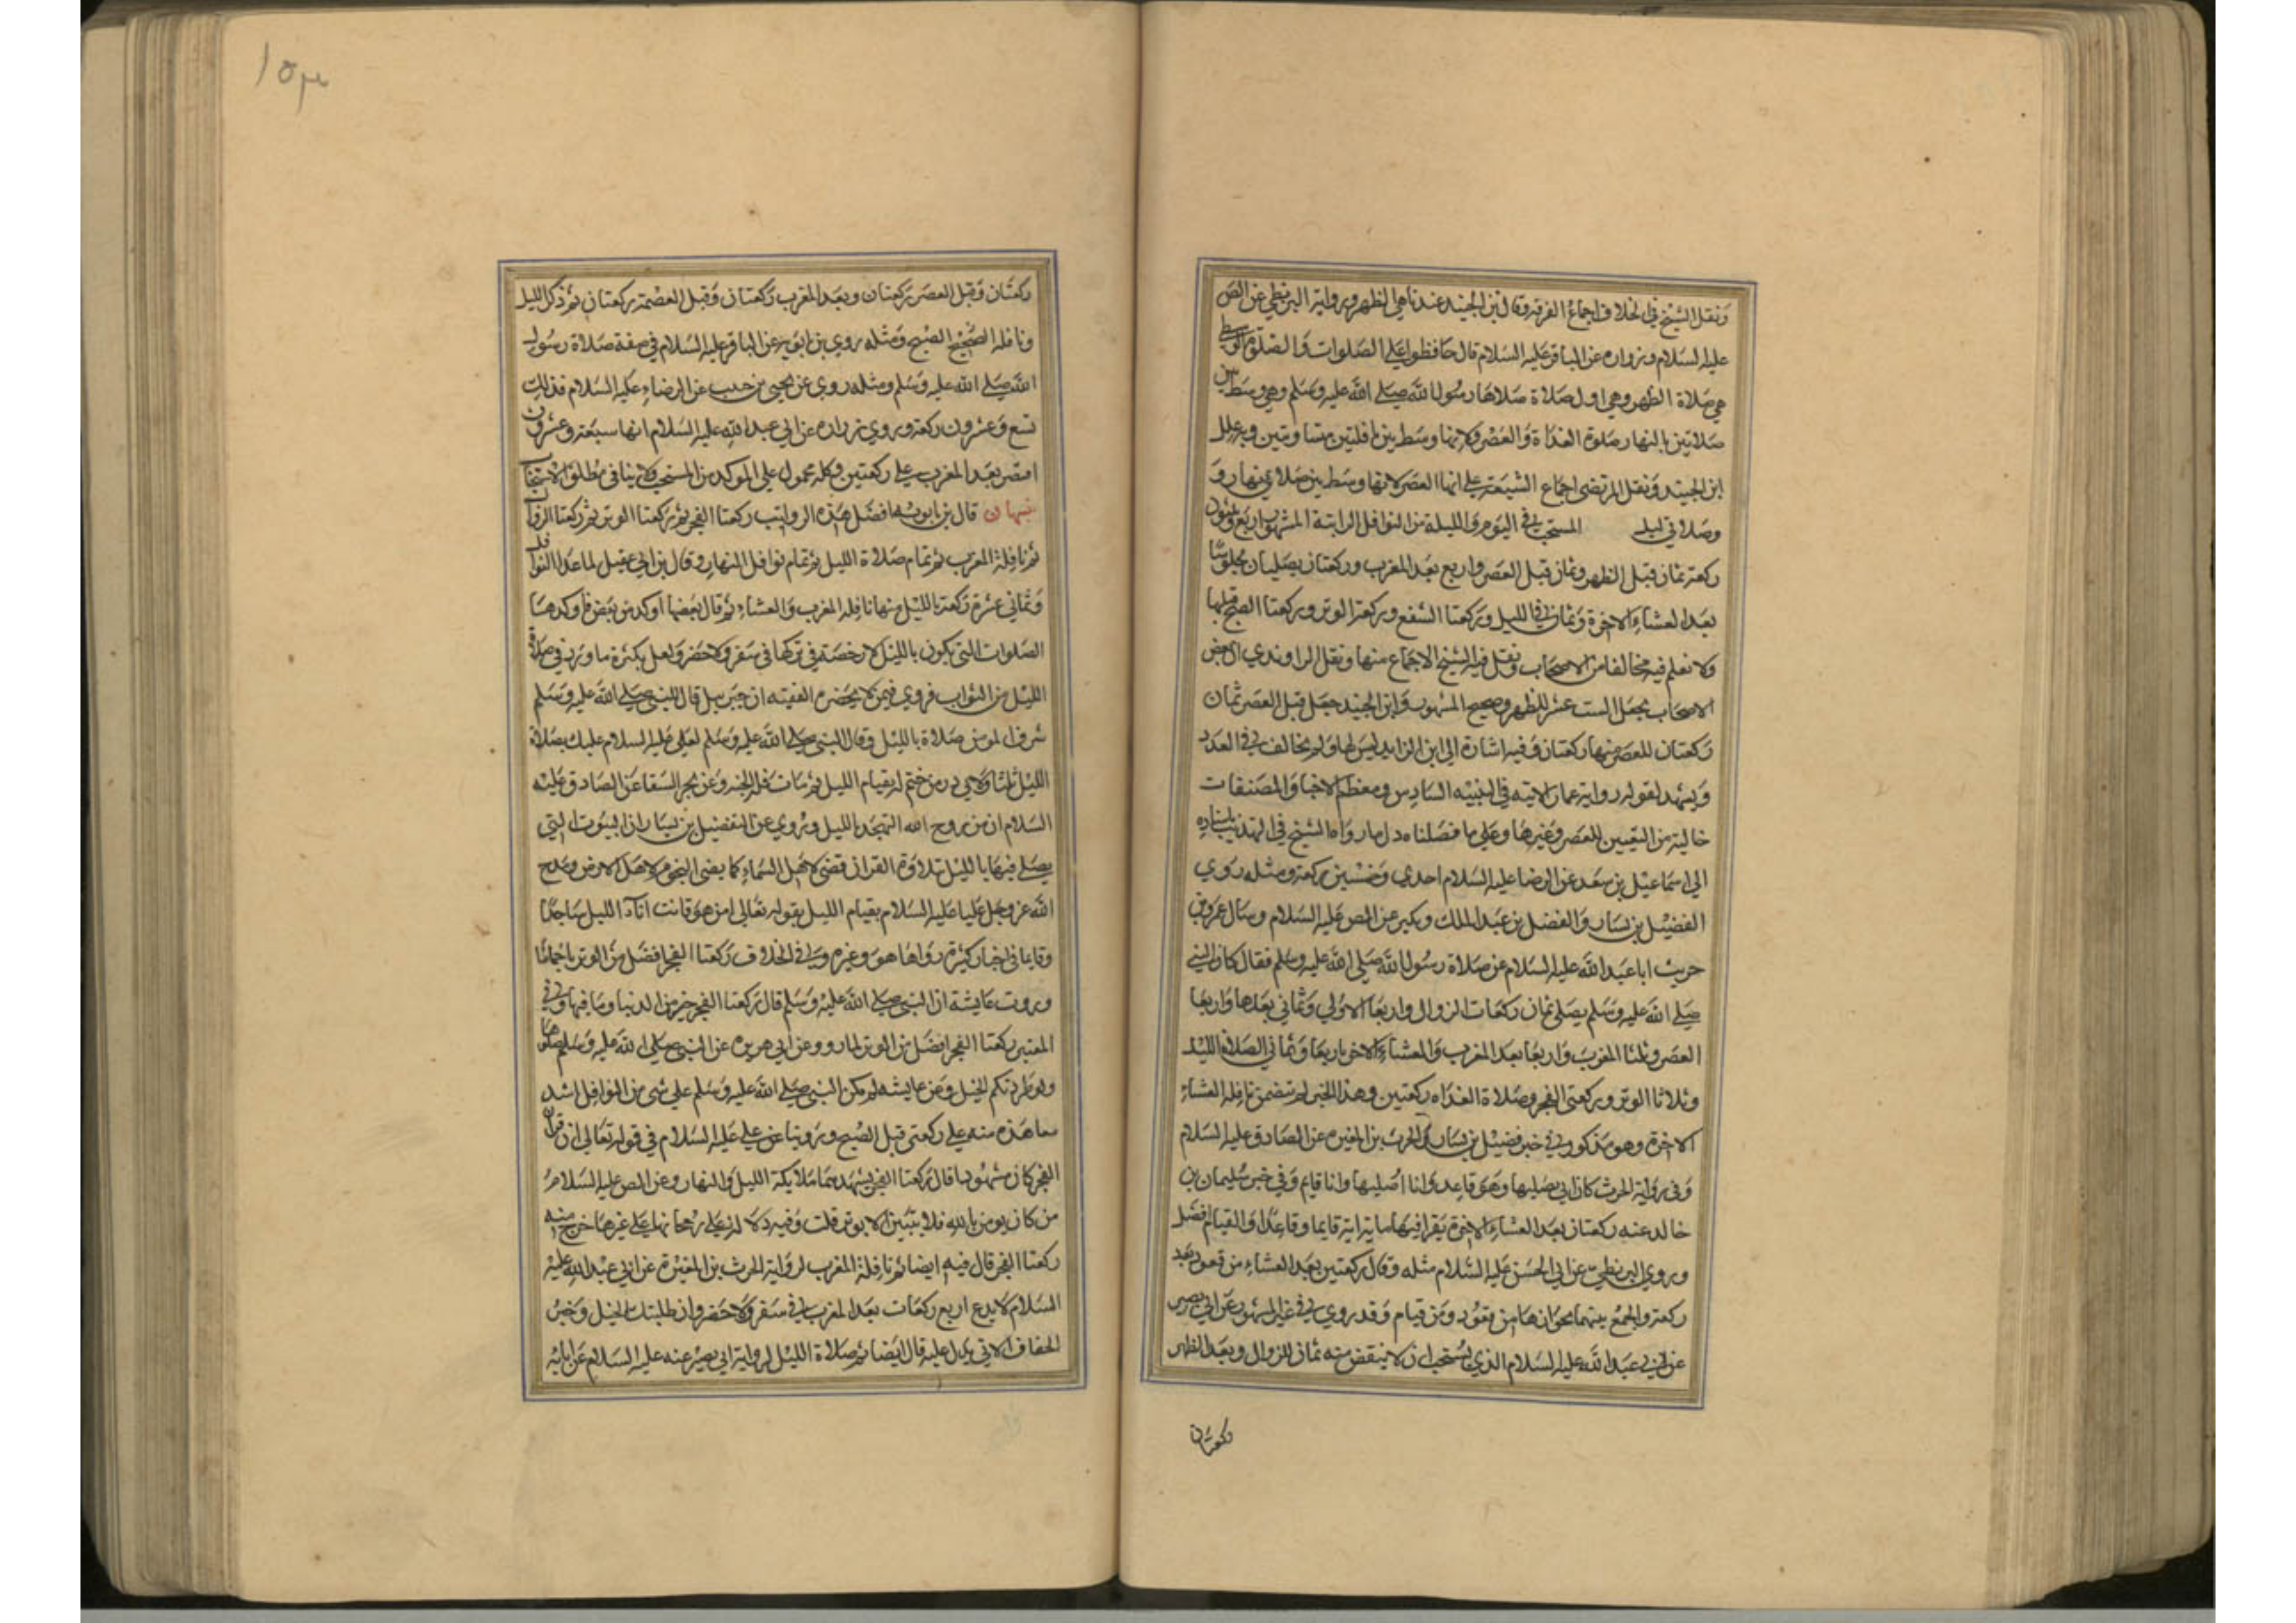 ونقل الشيخ في الخلاف اجماع الفرقة وقال بن الجنيد عندنا هي الظهر ورواية البزنطي عن الص
عليه السلام وزراره عن الباقر عليه السلام قال حافظوا علي الصلوات والصلوة الوسطي
هي صلاة الظهر وهي اول صلاة صلاها رسول الله صلي الله عليه وسلم وهي وسط بين
صلاتين بالنهار صلوة الغداة والعصر ولانها وسط بين نافلتين متساويتين وبه علل
ابن الجنيد ونقل المرتضي اجماع الشيعة علي انها العصر لانها وسط بين صلاتي نهار و
وصلاتي ليل المستحب في اليوم والليلة من النوافل الراتبة المشهور اربع وثلثون
ركعة ثمان قبل الظهر وثمان قبل العصر واربع بعد المغرب وركعتان يصليان جلوسا
بعد العشاء الاخرة وثمان في الليل وركعتا الشفع وركعة الوتر وركعتا الصبح قبلها
ولا نعلم فيه مخالفا من الاصحاب ونقل فيه الشيخ الاجماع منها ونقل الراوندي ان بعض
الاصحاب يجعل الست عشر للظهر وصحيح المشهور وابن الجنيد جعل قبل العصر ثمان
ركعتان للعصر منها ركعتان وفيه اشارة الي ان الزايد ليس لها ولم يخالف في العدد
ويشهد لقوله رواية عمار الاتية في التنبيه السادس ومعظم الاخبار والمصنفات
خالية من التعيين للعصر وغيرها وعلي ما فصلناه دل ما رواه الشيخ في التهذيب باسناده
الي اسماعيل بن سعد عن الرضا عليه السلام احدي وخمسين ركعة ومثله روي
الفضيل بن يسار والفضل بن عبد الملك وبكير عن الص عليه السلام وسال عمرو بن
حريث ابا عبد الله عليه السلام عن صلاة رسول الله صلي الله عليه وسلم فقال كان النبي
صلي الله عليه وسلم يصلي ثمان ركعات الزوال واربعا الاولي وثماني بعدها واربعا
العصر وثلثا المغرب واربعا بعد المغرب والعشاء الاخر اربعا وثماني الصلاة الليل
وثلاثا الوتر وركعتي الفجر وصلاة الغداه ركعتين وهذا الخبر لم يتضمن نافلة العشاء
الاخرة وهو مذكور في خبر فضيل بن يسار والحرث بن المغيره عن الصادق عليه السلام
وفي رواية الحرث كان ابي يصليها وهو قاعد وانا اصليها وانا قايم وفي خبر سليمان بن
خالد عنه ركعتان بعد العشاء الاخرة يقرا فيها ماية اية قايما وقاعدا والقيام افضل
وروي البزنطي عن ابي الحسن عليه السلام مثله وقال ركعتين بعد العشاء من قعود تعد
ركعة والجمع بينهما بجوازهما من قعود ومن قيام وقد روي في غير المشهور عن ابي بصير
عن ابي عبد الله عليه السلام الذي يستحب ان لا ينقض منه ثمان للزوال وبعد الظهر
ركعتان
١٥٣
ركعتان وقبل العصر ركعتان وبعد المغرب ركعتان وقبل العصمة ركعتان ثم ذكر الليل
ونافله الصبح ومثله روي بن ابي عن الباقر عليه السلام في صفة صلاة رسول
الله صلي الله عليه وسلم ومثله روي عن يحيي بن حبيب عن الرضاء عليه السلام فذلك
تسع وعشرون ركعة وروي زراره عن ابي عبد الله عليه السلام انها سبعة وعشرون
اقتصر بعد المغرب علي ركعتين وكله محمول علي الموكد من المستحب ولا ينافي مطلق الاستحباب
تنبيهان قال بن بابويه افضل هذه الرواتب ركعتا الفجر ثم ركعتا الوتر ثم ركعتا الزوال
ثم نافلة المغرب ثم تمام صلاة الليل ثم تمام نوافل النهار وقال بن ابي عقيل لما عدا النوافل
وثماني عشرة ركعة بالليل منها نافلة المغرب والعشاء ثم قال بعضها اوكد من بعض فاوكدها
الصلوات التي يكون بالليل لا رخصة في تركها في سفر ولا حضر ولعل بكثرة ما ورد في صلاة
الليل من الثواب فروي فيمن لا يحضره الفقيه ان جبرييل قال للنبي صلي الله عليه وسلم
شرف المومن صلاة بالليل وقال النبي صلي الله عليه وسلم لعلي عليه السلام عليك بصلاة
الليل ثلثا وروي من ختم له بقيام الليل ثم مات فله الجنه وعن بحر السقا عن الصادق عليه
السلام ان من روح الله التهجد بالليل وروي عن الفضيل بن يسار ان البيوت التي
يصلي فيها بالليل بتلاوة القران تضي لاهل السماء كما يضي النجوم لاهل الارض ومدح
الله عز وجل عليا عليه السلام بقيام الليل بقوله تعالي امن هو قانت اناء الليل ساجدا
وقايما في اخبار كثيرة رواها هو وغيره وفي الخلاف ركعتا الفجر افضل من الوتر باجماعنا
وروت عايشة ان النبي صلي الله عليه وسلم قال ركعتا الفجر خير من الدنيا وما فيها وفي
المعتبر ركعتا الفجر افضل من الوتر لما روو عن ابي هريره عن النبي صلي الله عليه وسلم صلوها
ولو طردتكم الخيل وعن عايشه لم يكن النبي صلي الله عليه وسلم علي شي من النوافل اشد
معاهدة منه علي ركعتي قبل الصبح وروينا عن علي عليه السلام في قوله تعالي ان قران
الفجر كان مشهودا قال ركعتا الفجر يشهدهما ملايكة الليل والنهار وعن الص عليه السلام
من كان يومن بالله فلا يبيتن الا بوتر قلت وفيه دلالة علي رجحانها علي غيرها خرج منه
ركعتا الفجر قال فيه ايضا ثم نافلة المغرب لرواية الحرث بن المغيرة عن ابي عبد الله عليه
السلام لا يدع اربع ركعات بعد المغرب في سفر ولا حضر وان طلبتك الخيل وخبر
الخفاف الاتي يدل عليه قال ايضا ثم صلاة الليل لرواية ابي بصير عنه عليه السلام عن ابايه